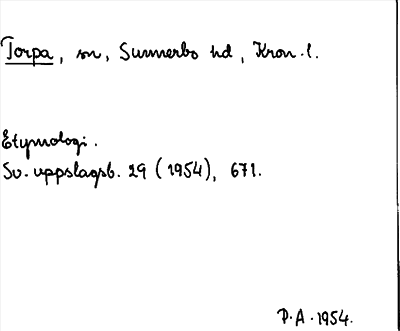 Torpa, sn, Sunnerbo hd, Kron. l.
Etymologi.
Sv. uppslagsb. 29 (1954), 671.
P. A. 1954.